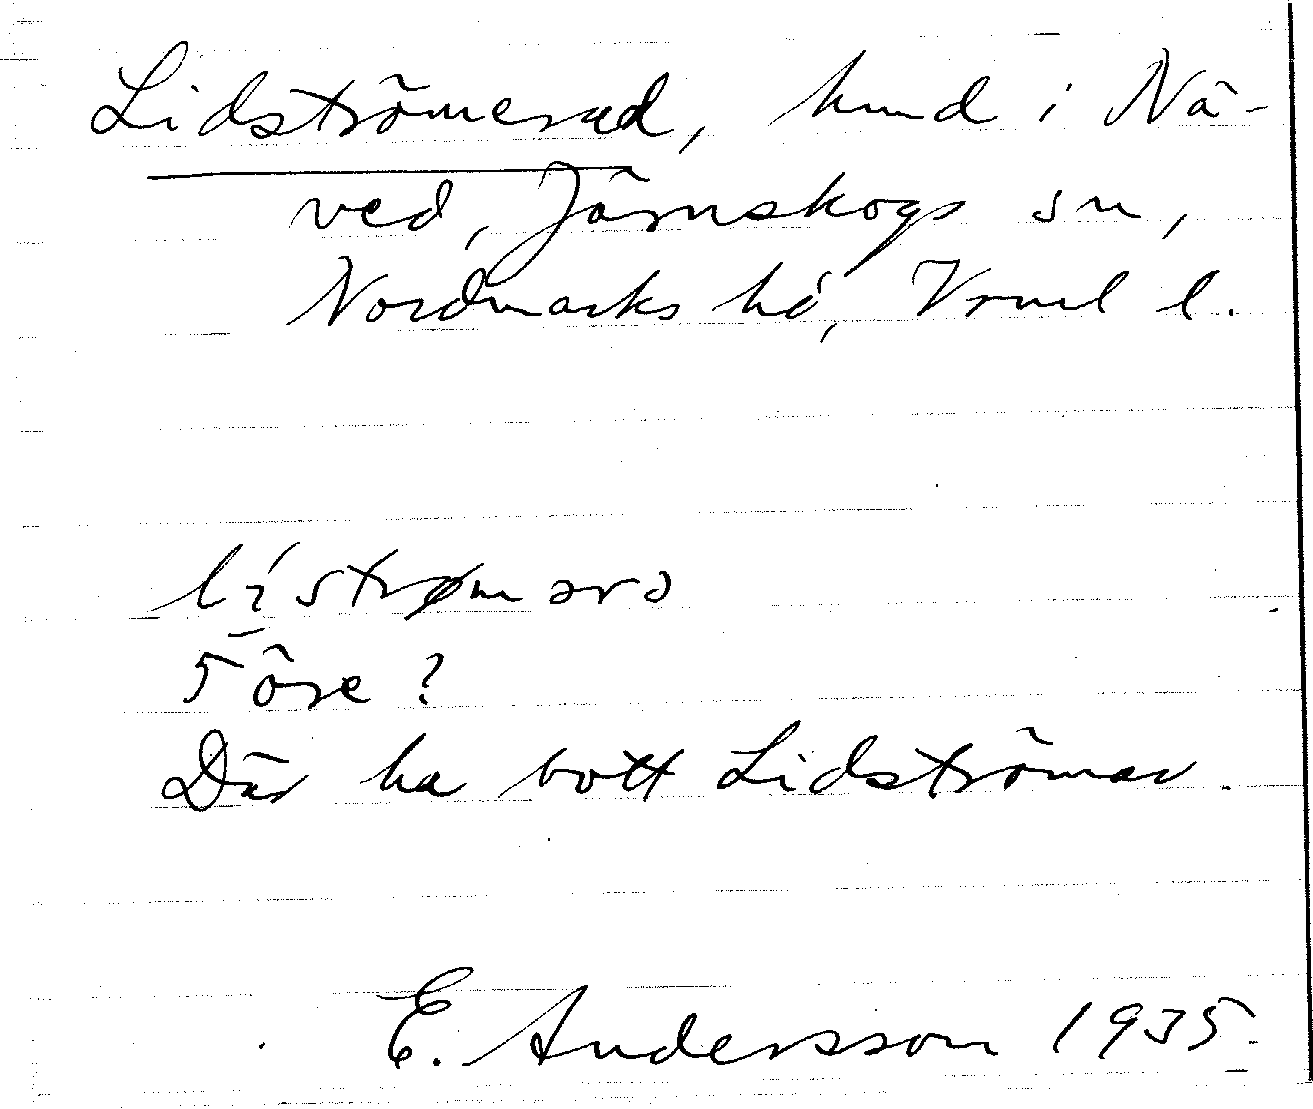 Lidströmerud, hmd i Nä-
ved, Järnskogs sn,
Nordmarks hd, Vrml l.
lístrømərə
5 öre ?
Där ha bott Lidströmar.
E. Andersson 1935.